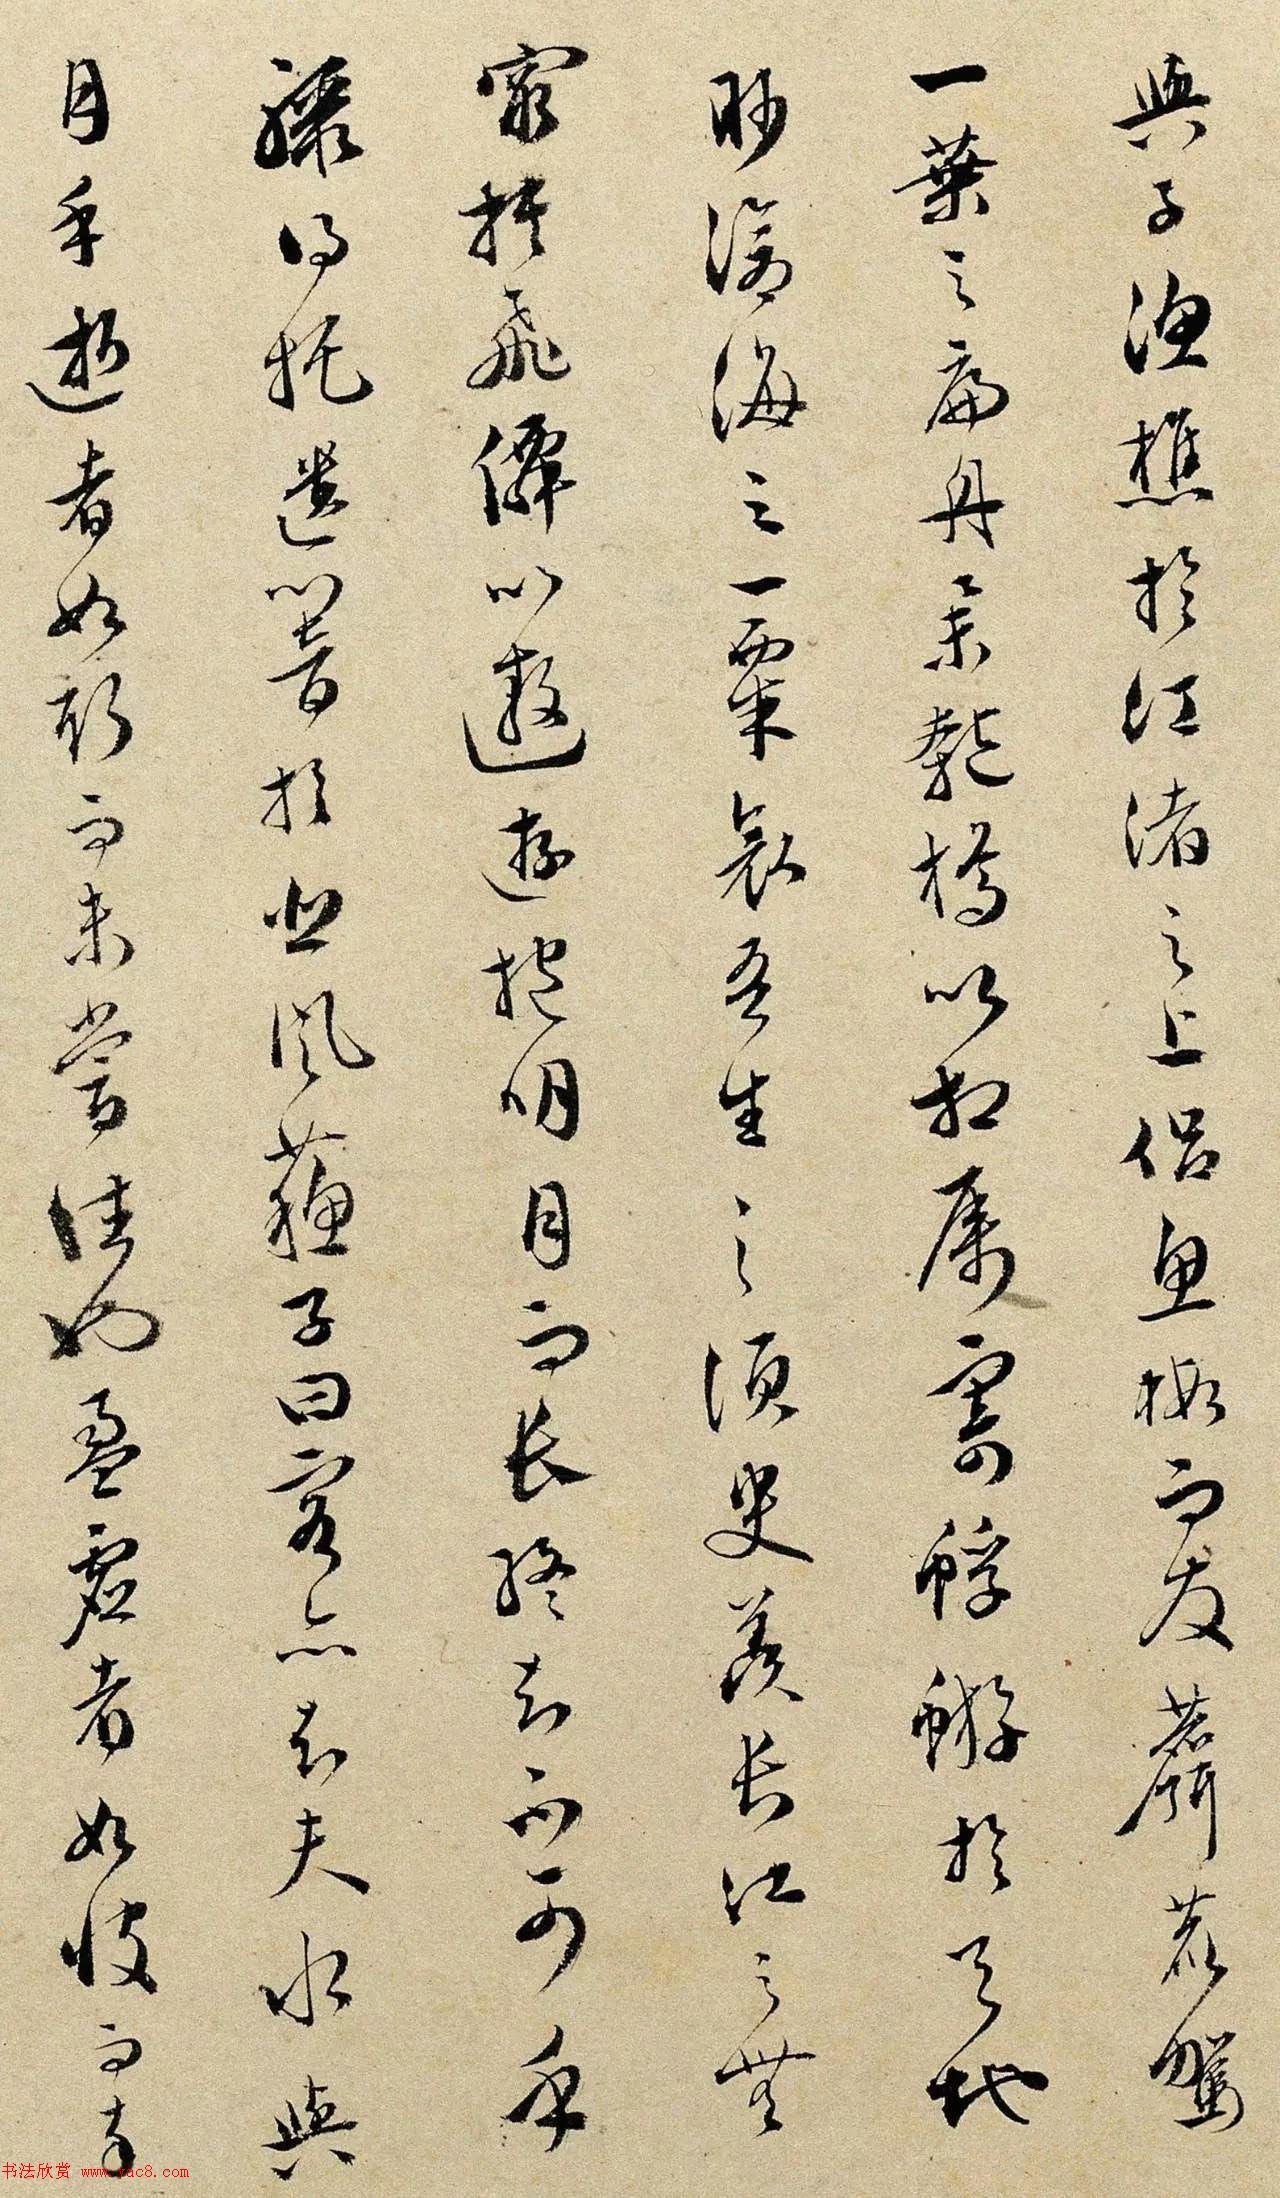 與子漁樵於江渚之上侶魚蝦而友麋鹿駕
一葉之扁舟舉匏樽以相屬寄蜉蝣於天地
眇滄海之一粟哀吾生之須臾羨長江之無
窮挾飛僊以遨遊抱明月而長終知不可乎
驟得托遺響於悲風蘓子曰客亦知夫水與
月乎逝者如斯而未嘗往也盈虛者如彼而卒
书法欣赏 www.yac8.com